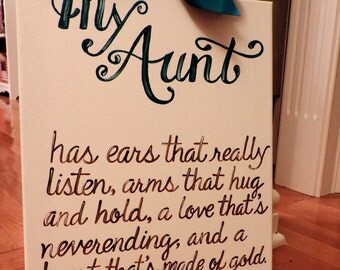 My
Aunt
has ears that really
listen, arms that hug
and hold, a love that's
neverending, and a
heart that's made of gold.